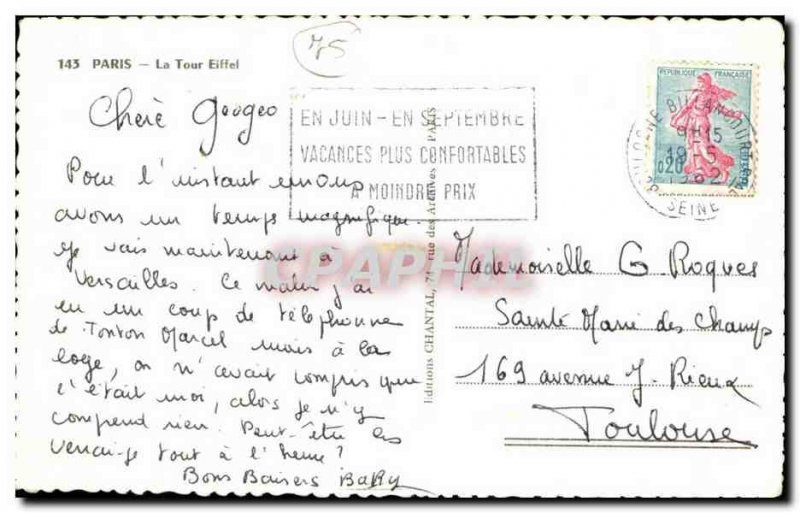 143 PARIS — La Tour Eiffel
75
EN JUIN - EN SEPTEMBRE
VACANCES PLUS CONFORTABLES
A MOINDRE PRIX
REPUBLIQUE FRANÇAISE
0,20
BOULOGNE BILLANCOURT
9H15
18-5
1962
SEINE
Editions CHANTAL, 74, rue des Archives - PARIS
CPAPHIL
Chère Geogeo
Pour l'instant nous
avons un temps magnifique.
Je vais maintenant à
Versailles. Ce matin j'ai
eu un coup de téléphone
de Tonton Marcel mais à la
loge, on n'avait compris que
c'était moi, alors je n'y
comprend rien. Peut-être les
verrai-je tout à l'heure ?
Bons Baisers
Mademoiselle G Roques
Sainte Marie des Champs
169 avenue J. Rieux
Toulouse